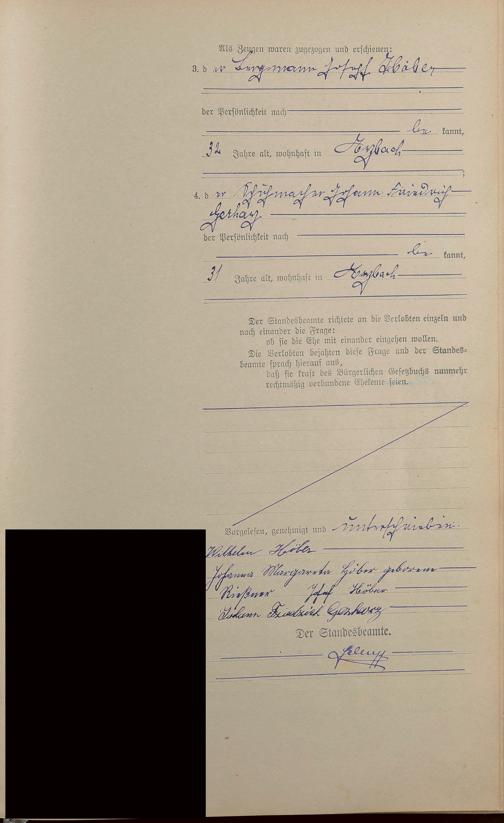 Als Zeugen waren zugezogen und erschienen:
3. d er Bergmann Josef Höber
der Persönlichkeit nach
be kannt,
32 Jahre alt, wohnhaft in
4. d er Schuhmacher Johann Friedrich
der Persönlichkeit nach
be kannt,
31 Jahre alt, wohnhaft in
Der Standesbeamte richtete an die Verlobten einzeln und
nach einander die Frage:
ob sie die Ehe mit einander eingehen wollen.
Die Verlobten bejahten diese Frage und der Standes-
beamte sprach hierauf aus,
daß sie kraft des Bürgerlichen Gesetzbuchs nunmehr
rechtmäßig verbundene Eheleute seien.
Vorgelesen, genehmigt und unterschrieben.
Wilhelm Höber
Johanna Margareta Höber geborene
Rießner Josef Höber
Johann Friedrich
Der Standesbeamte.